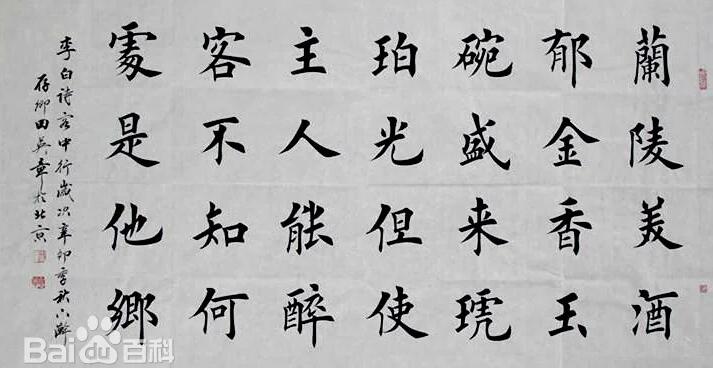 蘭陵美酒
郁金香玉
碗盛来琥
珀光但使
主人能醉
客不知何
處是他鄉
李白詩客中行歲次辛卯季秋小瀞
存卿田英章於北京
Bai百科